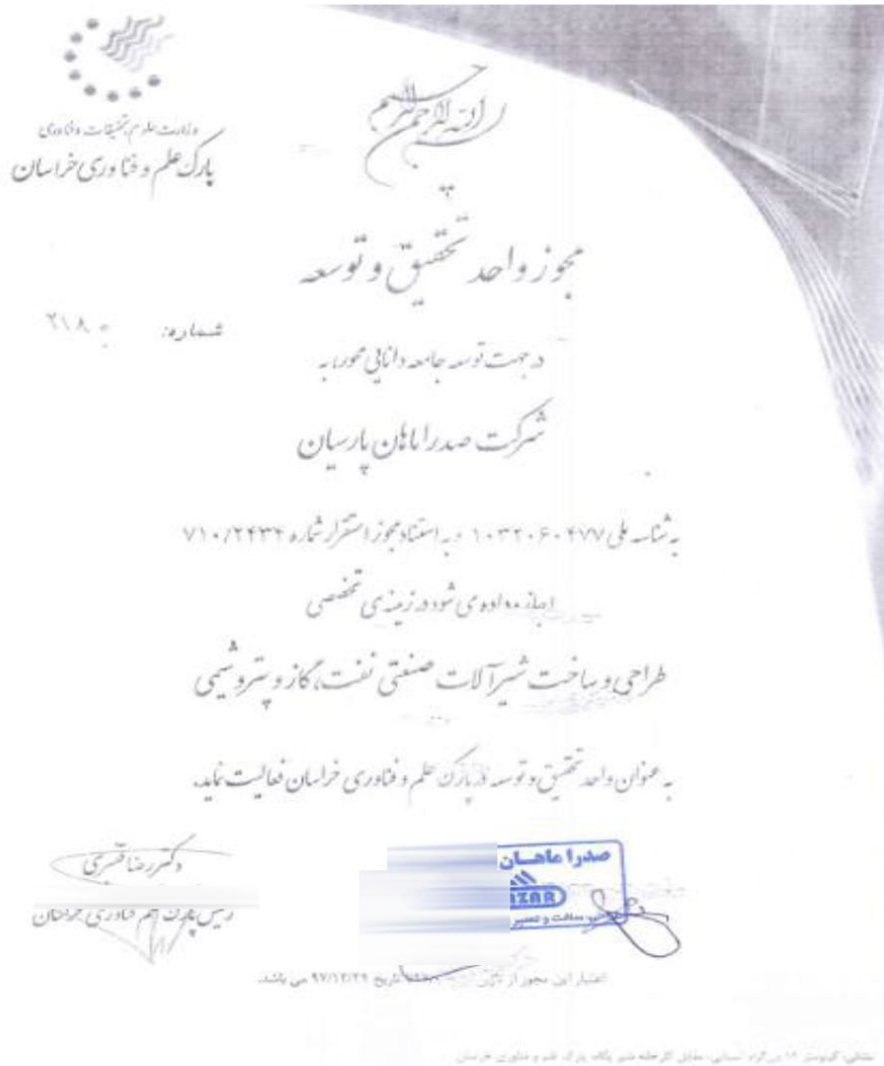 وزارت علوم، تحقیقات و فناوری
پارک علم و فناوری خراسان
بسم الله الرحمن الرحیم
مجوز واحد تحقیق و توسعه
شماره: ۲۱۸
در جهت توسعه جامعه دانایی محور، به
شرکت صدرا ماهان پارسیان
به شناسه ملی ۱۰۳۲۰۶۰۴۷۷ و به استناد مجوز استقرار شماره ۷۱۰/۲۴۳۴
اجازه داده می شود در زمینه ی تخصصی
طراحی و ساخت شیرآلات صنعتی نفت، گاز و پتروشیمی
به عنوان واحد تحقیق و توسعه در پارک علم و فناوری خراسان فعالیت نماید.
دکتر رضا قنبری
رییس پارک علم و فناوری خراسان
صدرا ماهان
AZAR
ساخت و تعمیر
اعتبار این مجوز از تاریخ تا تاریخ ۹۷/۱۲/۲۹ می باشد.